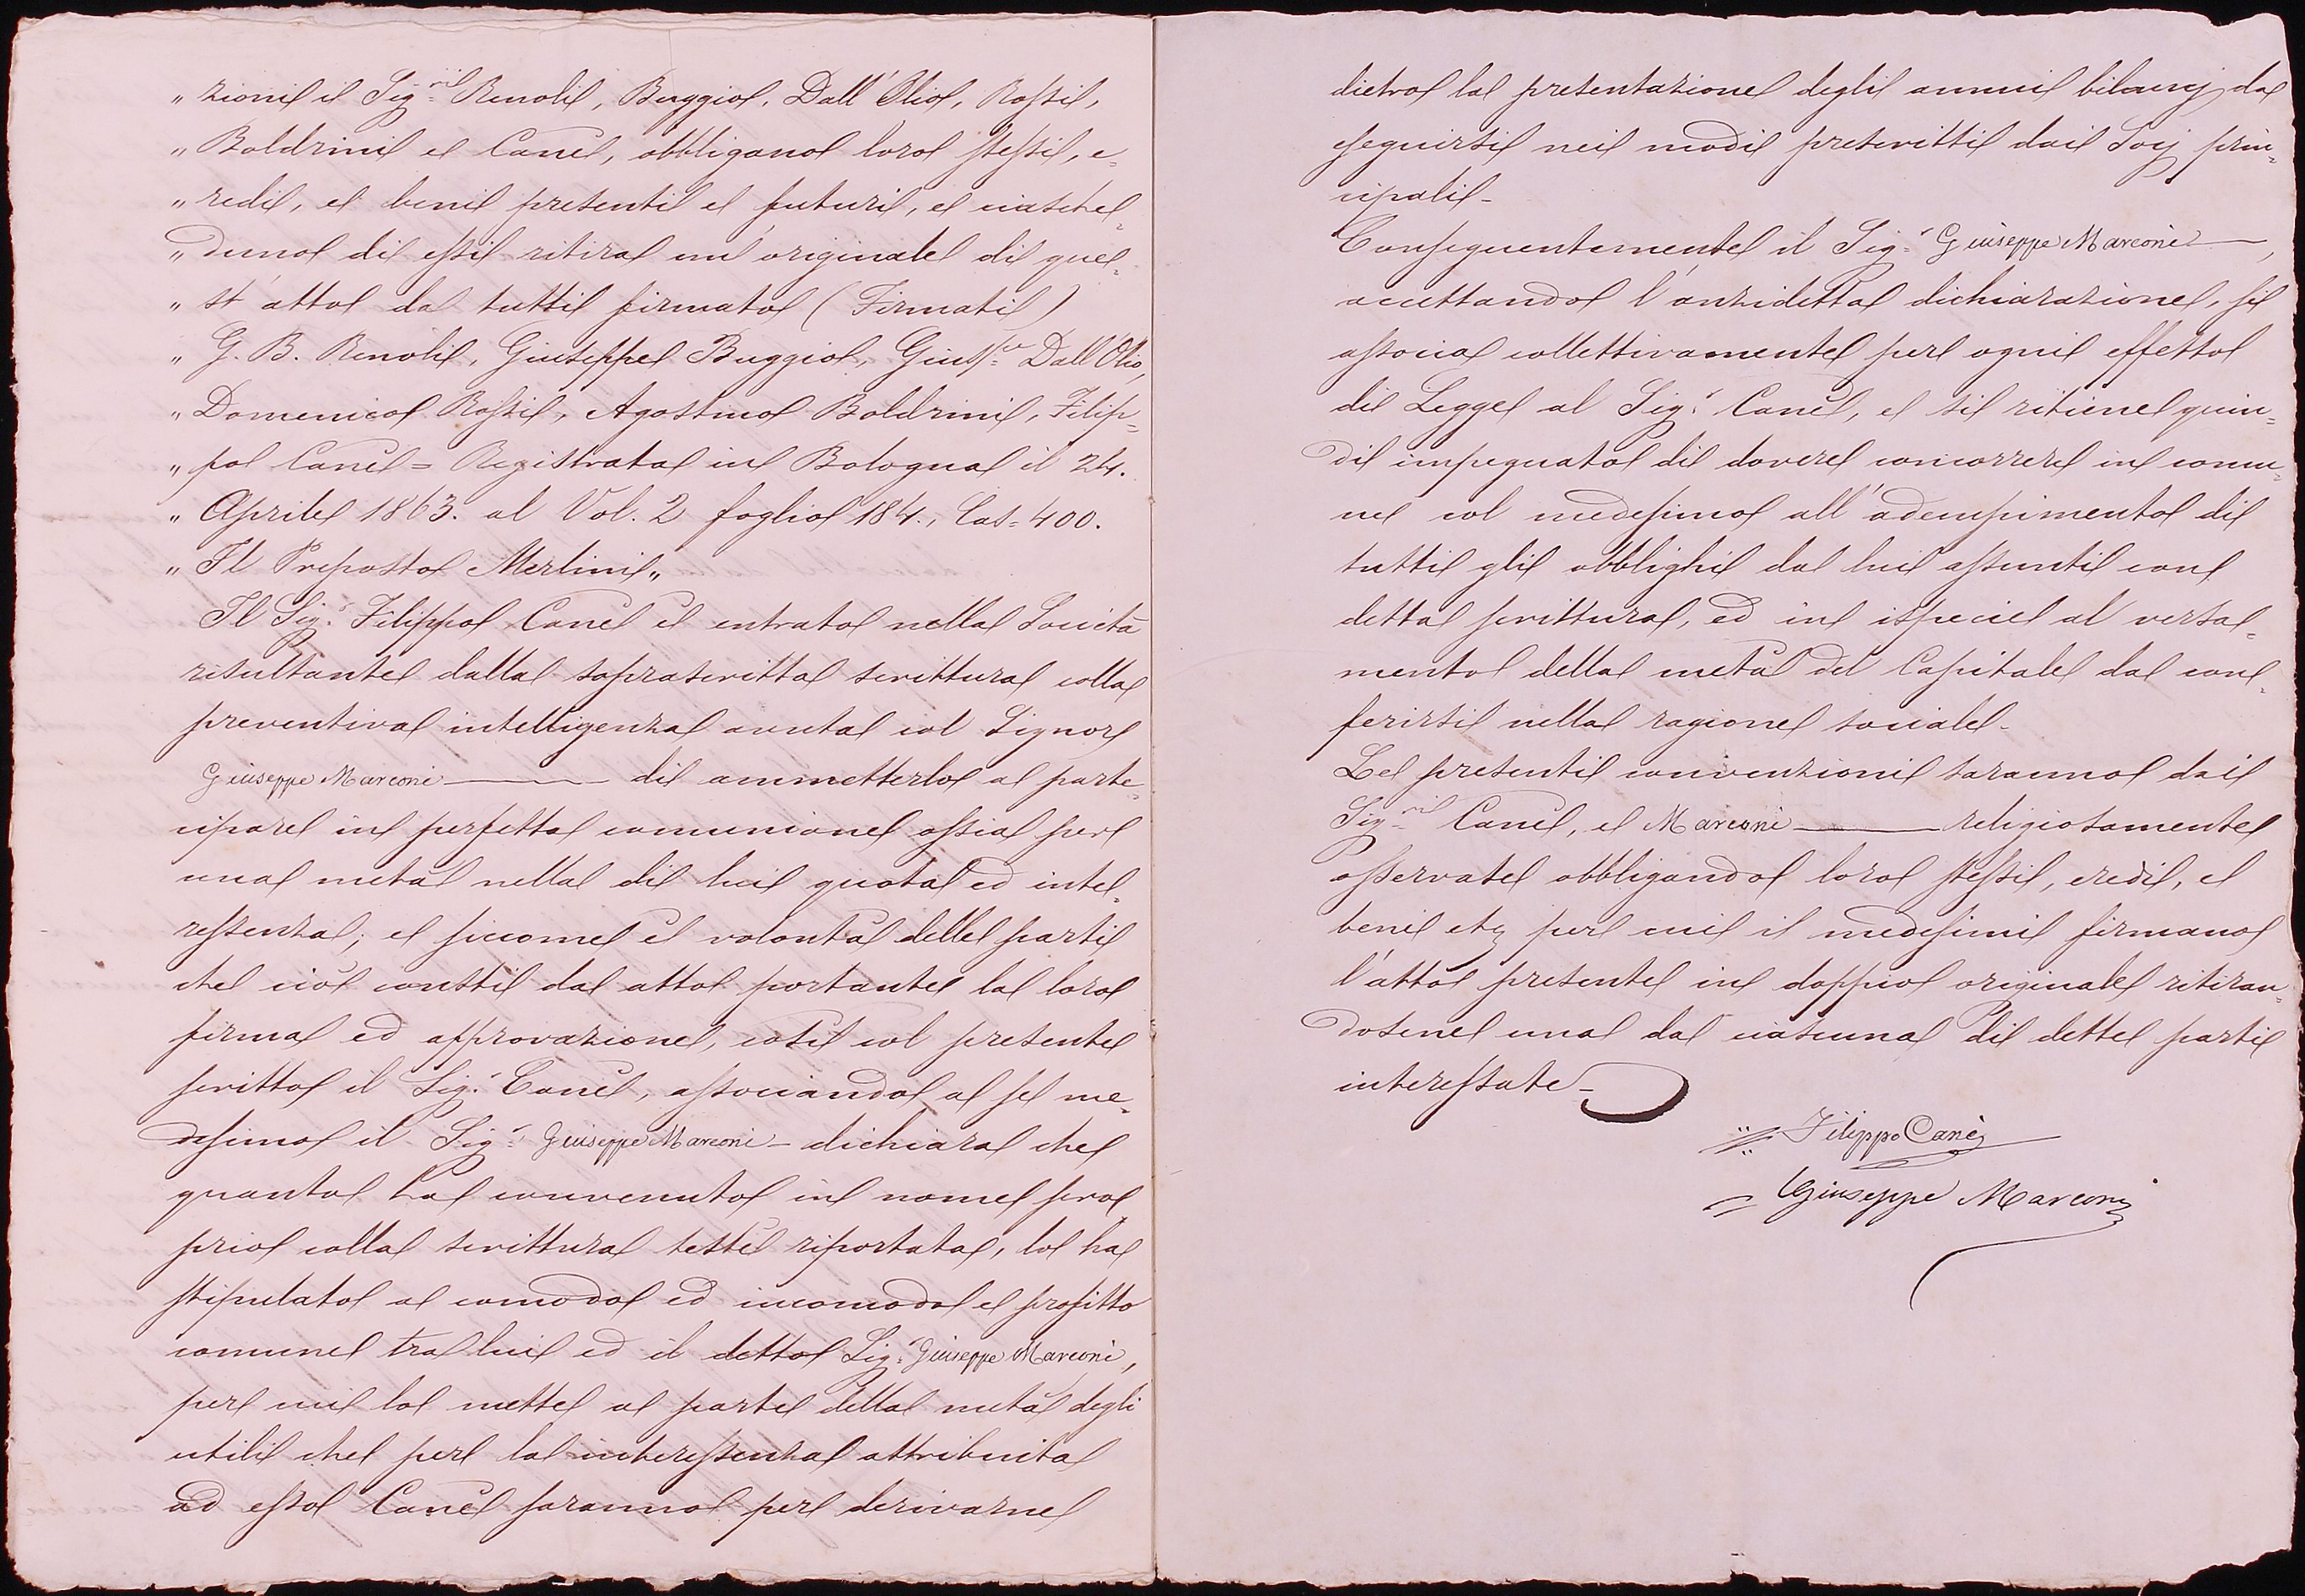 „ zioni i Sig.ri Renoli, Buggio, Dall'Olio, Rossi,
„ Boldrini e Canè, obbligano loro stessi, e-
„ redi, e beni presenti e futuri, e ciasche-
„ duno di essi ritira un'originale di que-
„ st'atto da tutti firmato (Firmati)
„ G. B. Renoli, Giuseppe Buggio, Gius.e Dall'Olio,
„ Domenico Rossi, Agostino Boldrini, Filip-
„ po Canè = Registrata in Bologna il 24.
„ Aprile 1863. al Vol. 2 foglio 184., Cas = 400.
„ Il Preposto Merlini„
Il Sig.r Filippo Canè è entrato nella Società
risultante dalla soprascritta scrittura colla
preventiva intelligenza avuta col Signore
Giuseppe Marconi di ammetterlo a parte-
cipare in perfetta comunione ossia per
una metà nella di lui quota ed inte-
ressenza; e siccome è volontà delle parti
che ciò consti da atto portante la loro
firma ed approvazione, così col presente
scritto il Sig.r Canè, associando a se me-
desimo il Sig.r Giuseppe Marconi dichiara che
quanto ha convenuto in nome pro-
prio colla scrittura testè riportata, lo ha
stipulato a comodo ed incomodo e profitto
comune tra lui ed il detto Sig.r Giuseppe Marconi,
per cui lo mette a parte della metà degli
utili che per la interessenza attribuita
ad esso Canè saranno per derivarne
dietro la presentazione degli annui bilancj da
eseguirsi nei modi prescritti dai Socj prin-
cipali-
Conseguentemente il Sig.r Giuseppe Marconi,
accettando l'anzidetta dichiarazione, si
associa collettivamente per ogni effetto
di Legge al Sig.r Canè, e si ritiene quin-
di impegnato di dovere concorrere in comu-
ne col medesimo all'adempimento di
tutti gli obblighi da lui assunti con
detta scrittura, ed in ispecie al versa-
mento della metà del Capitale da con-
ferirsi nella ragione sociale-
Le presenti convenzioni saranno dai
Sig.ri Canè, e Marconi religiosamente
osservate obbligando loro stessi, eredi, e
beni etc per cui i medesimi firmano
l'atto presente in doppio originale ritiran-
dosene una da ciascuna di dette parti
interessate-
Filippo Canè
Giuseppe Marconi